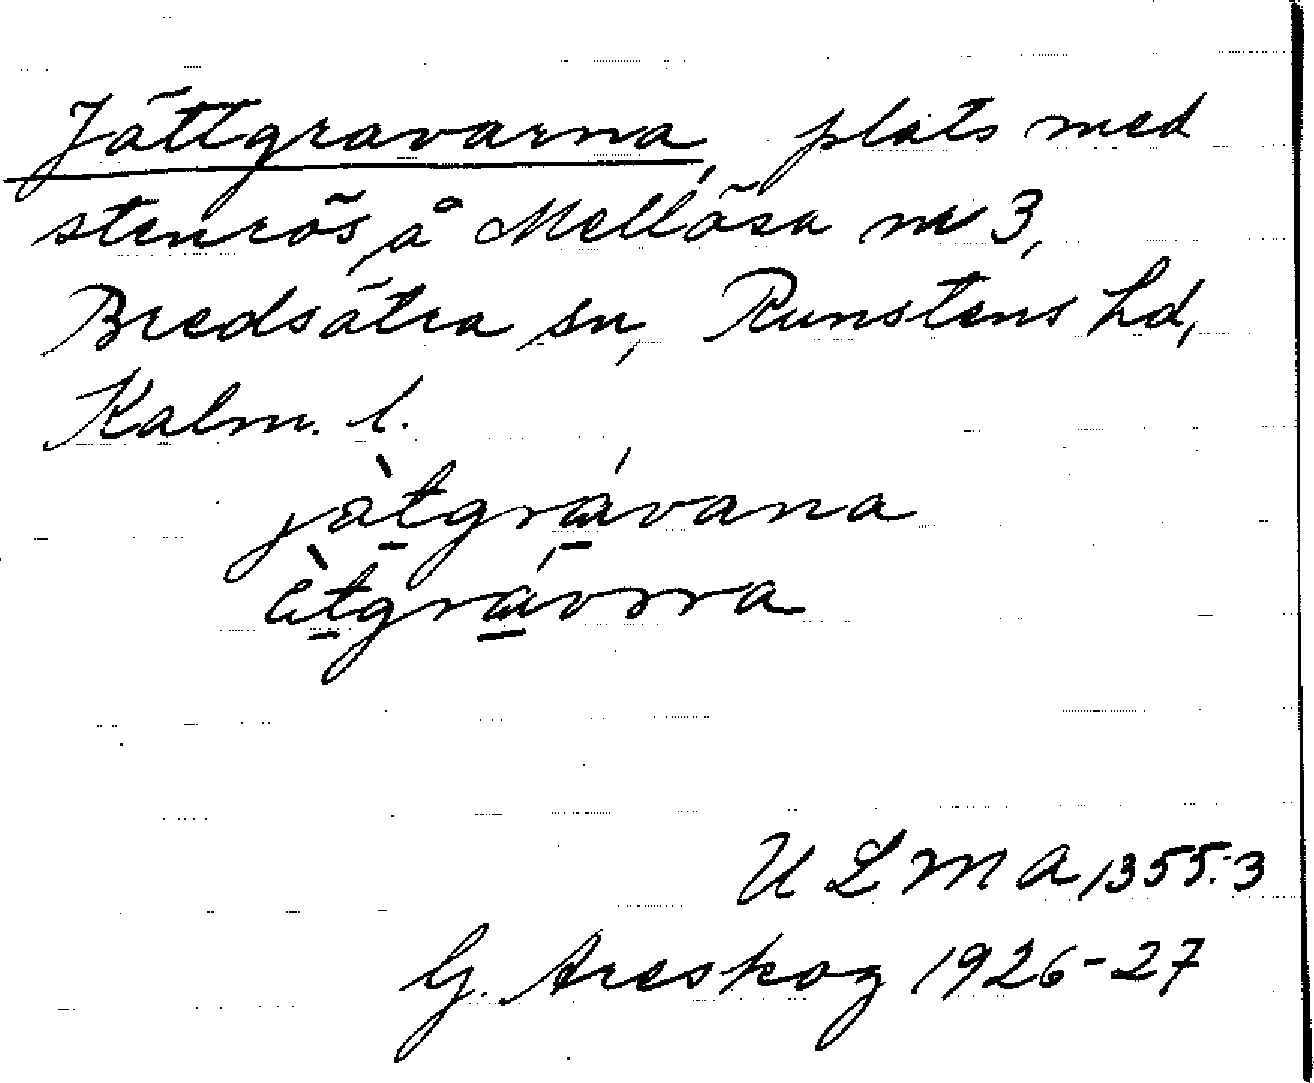 Jättgravarna, plats med
stenrös å Mellösa nr 3,
Bredsätra sn, Runstens hd,
Kalm. l.
jàtgrávana
ULMA 1355:3
G. Areskog 1926-27